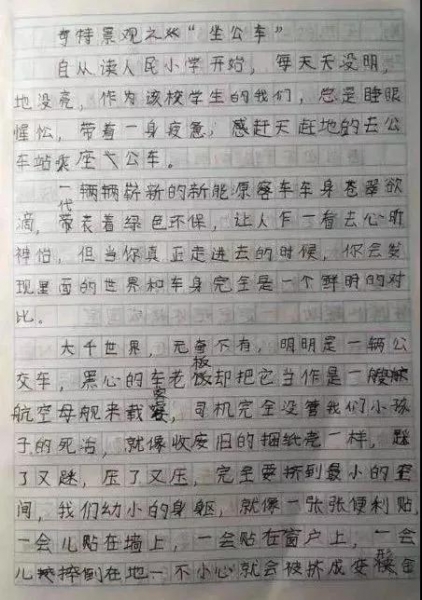 奇特景观之“坐公车”
自从读人民小学开始，每天天没明，
地没亮，作为该校学生的我们，总是睡眼
惺忪，带着一身疲惫，感赶天赶地的去公
车站乘座公车。
一辆辆崭新的新能源客车车身苍翠欲
滴，代表着绿色环保，让人乍一看去心旷
神怡，但当你真正走进去的时候，你会发
现里面的世界和车身完全是一个鲜明的对
比。
大千世界，无奇不有，明明是一辆公
交车，黑心的车老板却把它当作是一艘
航空母舰来载客，司机完全没管我们小孩
子的死活，就像收废旧的捆纸壳一样，踩
了又踩，压了又压，完全要挤到最小的空
间，我们幼小的身躯，就像一张张便利贴，
一会儿贴在墙上，一会贴在窗户上，一会
儿摔倒在地一不小心就会被挤成安全